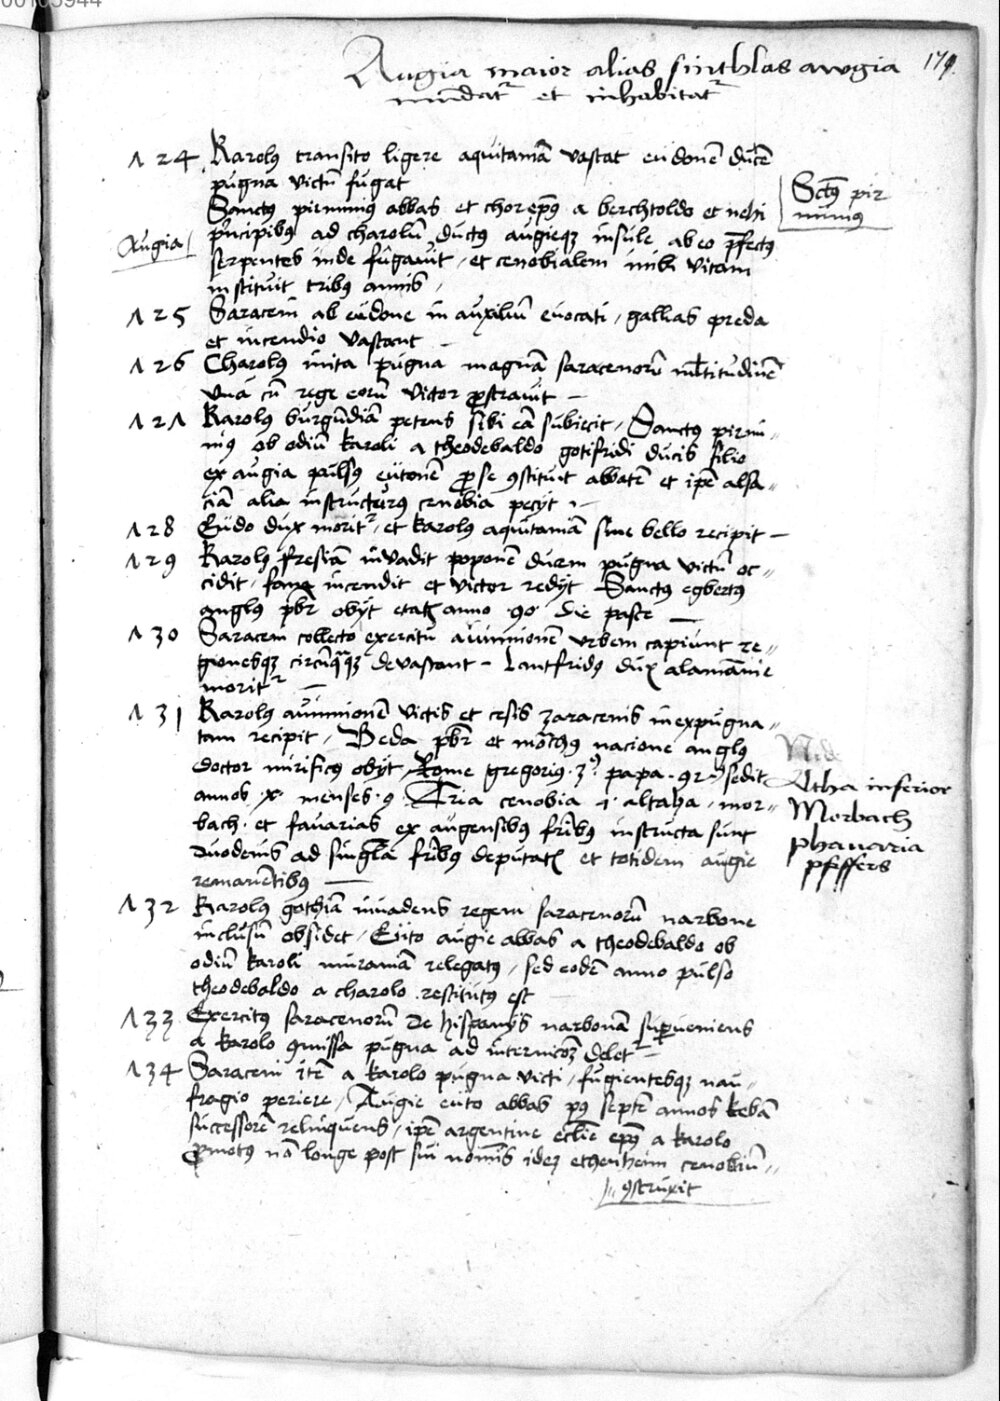 00103944
179.
Augia maior alias sinthlas augia
mundatr et inhabitatr
124 Karolus transito ligere aquitaniā vastat eudonē ducē
pugna victū fugat
Sanctus pirminius abbas et chorepūs a berchtoldo et nebi
Sctūs pir
minius
Augia
prīcipibus ad charolū ductus augieque insule ab eo prefectus
serpentes inde fugauit / et cenobialem inibi vitam
instituit tribus annis /
125 Saraceni ab eudone in auxiliū euocati / gallias preda
et incendio vastant
126 Charolus inita pugna magnā saracenorū multitudinē
vna cū rege eorū victor prostrauit –
127 Karolus burgūdiā petens sibi eā subiecit / Sanctus pirmi„
nius ob odiū karoli a theodebaldo gotifridi ducis filio
ex augia pulsus eutonē pro se constituit abbatē et ipē alsa„
ciā alia instructurus cenobia petijt
128 Eudo dux moritr / et karolus aquitaniā sine bello recipit –
129 Karolus fresiā inuadit poponē ducem pugna victū oc„
cidit / fana incendit et victor redijt Sanctus egbertus
anglus pbr obijt etatis anno ·90· die pasce –
130 Saraceni collecto exercitu auinnionē vrbem capiunt re„
gionesque circūquaque deuastant – Lantfridus dux alamānie
moritr –
131 Karolus auinnionē victis et cesis zaracenis inexpugna„
tam recipit / Beda pbr et monachus nacione anglus
doctor mirificus obijt / Rome gregorius 3us papa 92us sedit
annos x menses 9 Tria cenobia i· altaha / mor„
bach · et fauarias ex augensibus frībus instructa sunt
duodenis ad singla frībus deputatis et totidem augie
remanētibus –
Altha inferior
Morbach
phauaria
pfeffers
132 Karolus gothiā inuadens regem saracenorū narbone
inclusū obsidet / Eito augie abbas a theodebaldo ob
odiū karoli in vraniā relegatus / sed eodē anno pulso
theodebaldo a charolo restitutus est
133 Exercitus saracenorū de hispanijs narbonā superueniens
a karolo commissa pugna ad internicionē deletr –
134 Saraceni itē a karolo pugna victi / fugientesque nau„
fragio periere / Augie eito abbas post septē annos kebā
successorē relinquens / ipē argentine ecclīe epūs a karolo
promotus nō longe post sui nominis idest ethenheim cenobiū„
construxit